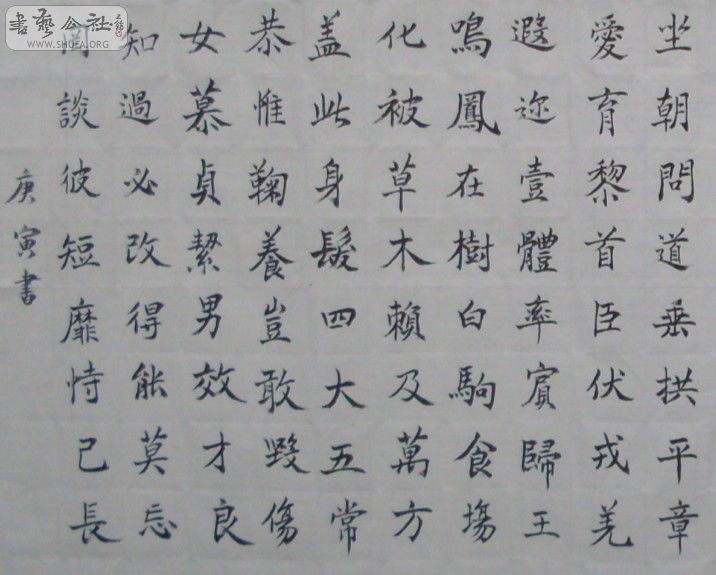 坐朝問道垂拱平章
愛育黎首臣伏戎羌
遐迩壹體率賓歸王
鳴鳳在樹白駒食塲
化被草木賴及萬方
盖此身髮四大五常
恭惟鞠養豈敢毀傷
女慕貞絜男效才良
知過必改得能莫忘
罔談彼短靡恃己長
庚寅書
書藝公社
WWW.SHUFA.ORG